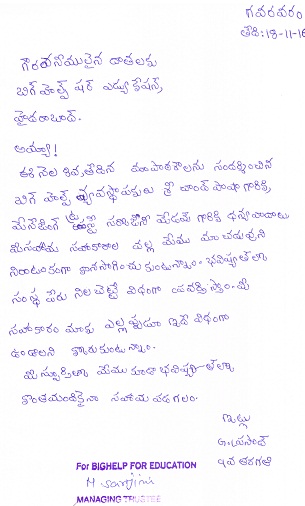 గవరవరం
తేది:18-11-16
గౌరవనీయులైన దాతలకు
బిగ్ హెల్ప్ ఫర్ ఎడ్యుకేషన్,
హైదరాబాద్.
అయ్యా!
ఈ నెల తేదిన మా పాఠశాలను సందర్శించిన
బిగ్ హెల్ప్ వ్యవస్థాపకులు శ్రీ చాంద్ పాషా గారికి
మేనేజింగ్ ట్రస్టీ మేడమ్ గారికి ధన్యవాదాలు
మీ సహాయ సహకారాల వల్ల మేము మా చదువుని
నిరాటంకంగా కొనసాగించుకుంటున్నాం. భవిష్యత్తులో
సంస్థ పేరు నిలబెట్టే విధంగా మీ
సహకారం మాకు ఎల్లప్పుడూ ఇదే విధంగా
ఉండాలని కోరుకుంటున్నాం.
మీ స్ఫూర్తితో మేము కూడా భవిష్యత్తులో
కొంతమందికైనా సహాయ పడగలం.
ఇట్లు
G.ప్రసాద్
తరగతి
For BIGHELP FOR EDUCATION
MANAGING TRUSTEE